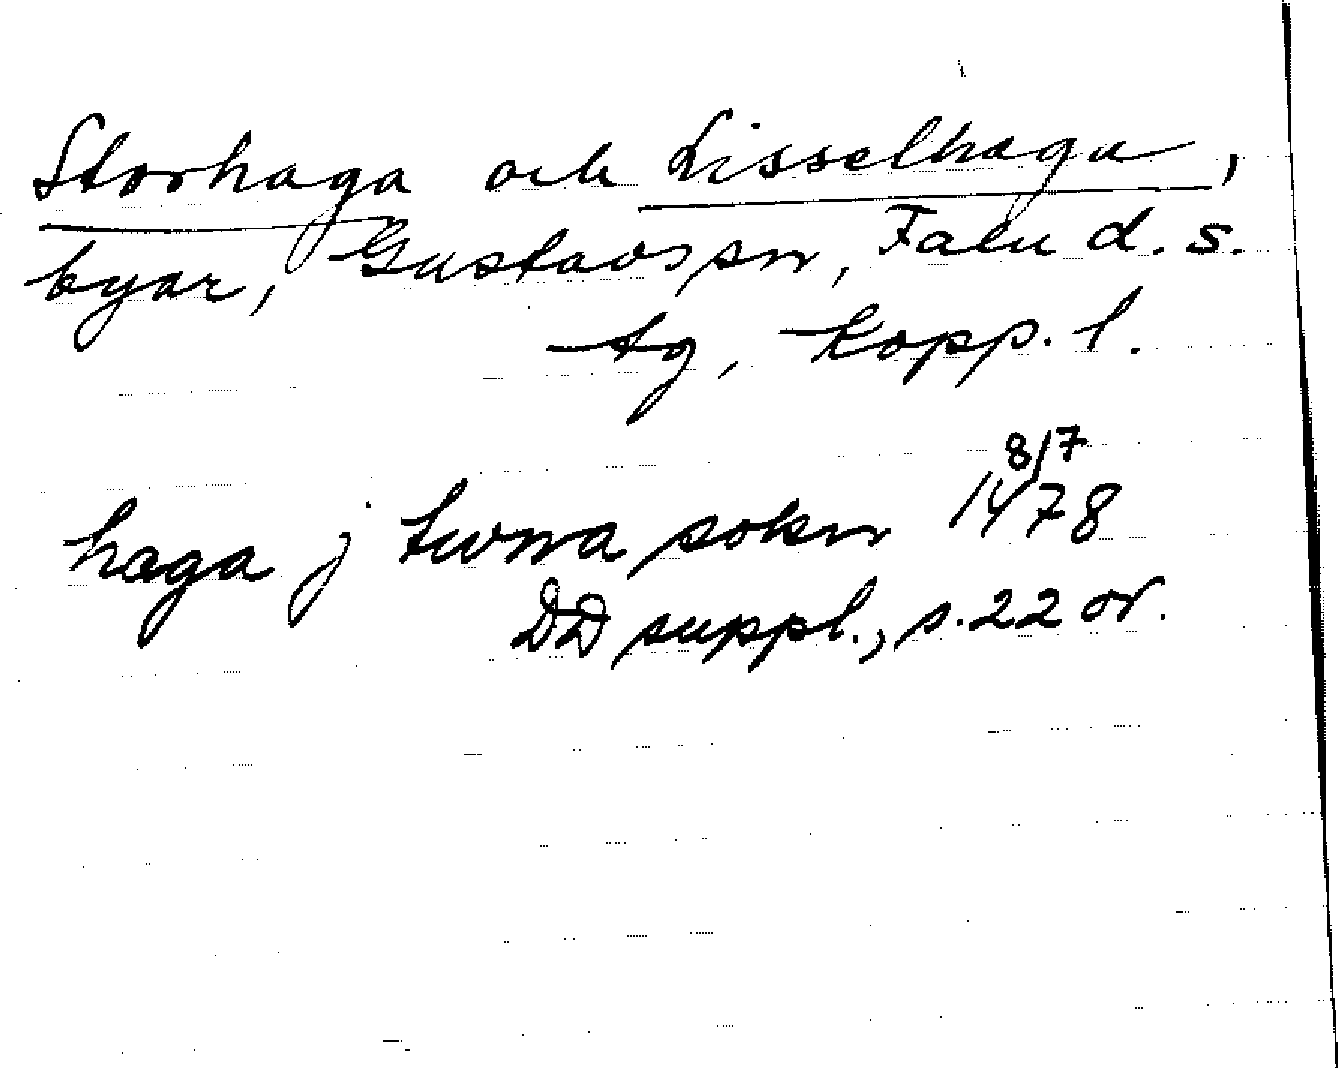 Storhaga och Lisselhaga,
byar, Gustavs sn, Falu d. s.
tg, Kopp. l.
haga j twna sokn 8/7 1478
DD suppl., s. 22 or.